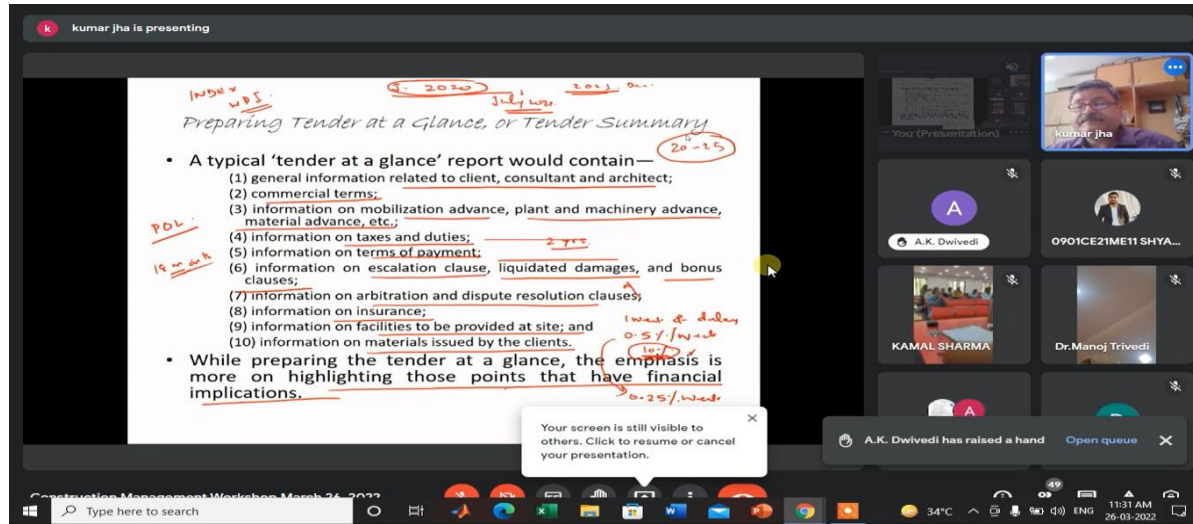 k kumar jha is presenting
INDEX
WPI
J. 2020
July 2021
2023 Dec.
Preparing Tender at a Glance, or Tender Summary
20-25
• A typical 'tender at a glance' report would contain—
(1) general information related to client, consultant and architect;
(2) commercial terms;
(3) information on mobilization advance, plant and machinery advance,
material advance, etc.;
POL
(4) information on taxes and duties;
2 yrs.
(5) information on terms of payment;
18 month
(6) information on escalation clause, liquidated damages, and bonus
clauses;
(7) information on arbitration and dispute resolution clauses;
(8) information on insurance;
1 week of delay
(9) information on facilities to be provided at site; and
0.5%/week
(10) information on materials issued by the clients.
10%
• While preparing the tender at a glance, the emphasis is
more on highlighting those points that have financial
implications.
0.25%/week
You (Presentation)
kumar jha
A
A.K. Dwivedi
0901CE21ME11 SHYA...
KAMAL SHARMA
Dr.Manoj Trivedi
A
Your screen is still visible to
others. Click to resume or cancel
your presentation.
A.K. Dwivedi has raised a hand
Open queue
Construction Management Workshop March 26, 2022
49
Type here to search
34°C
ENG
11:31 AM
26-03-2022